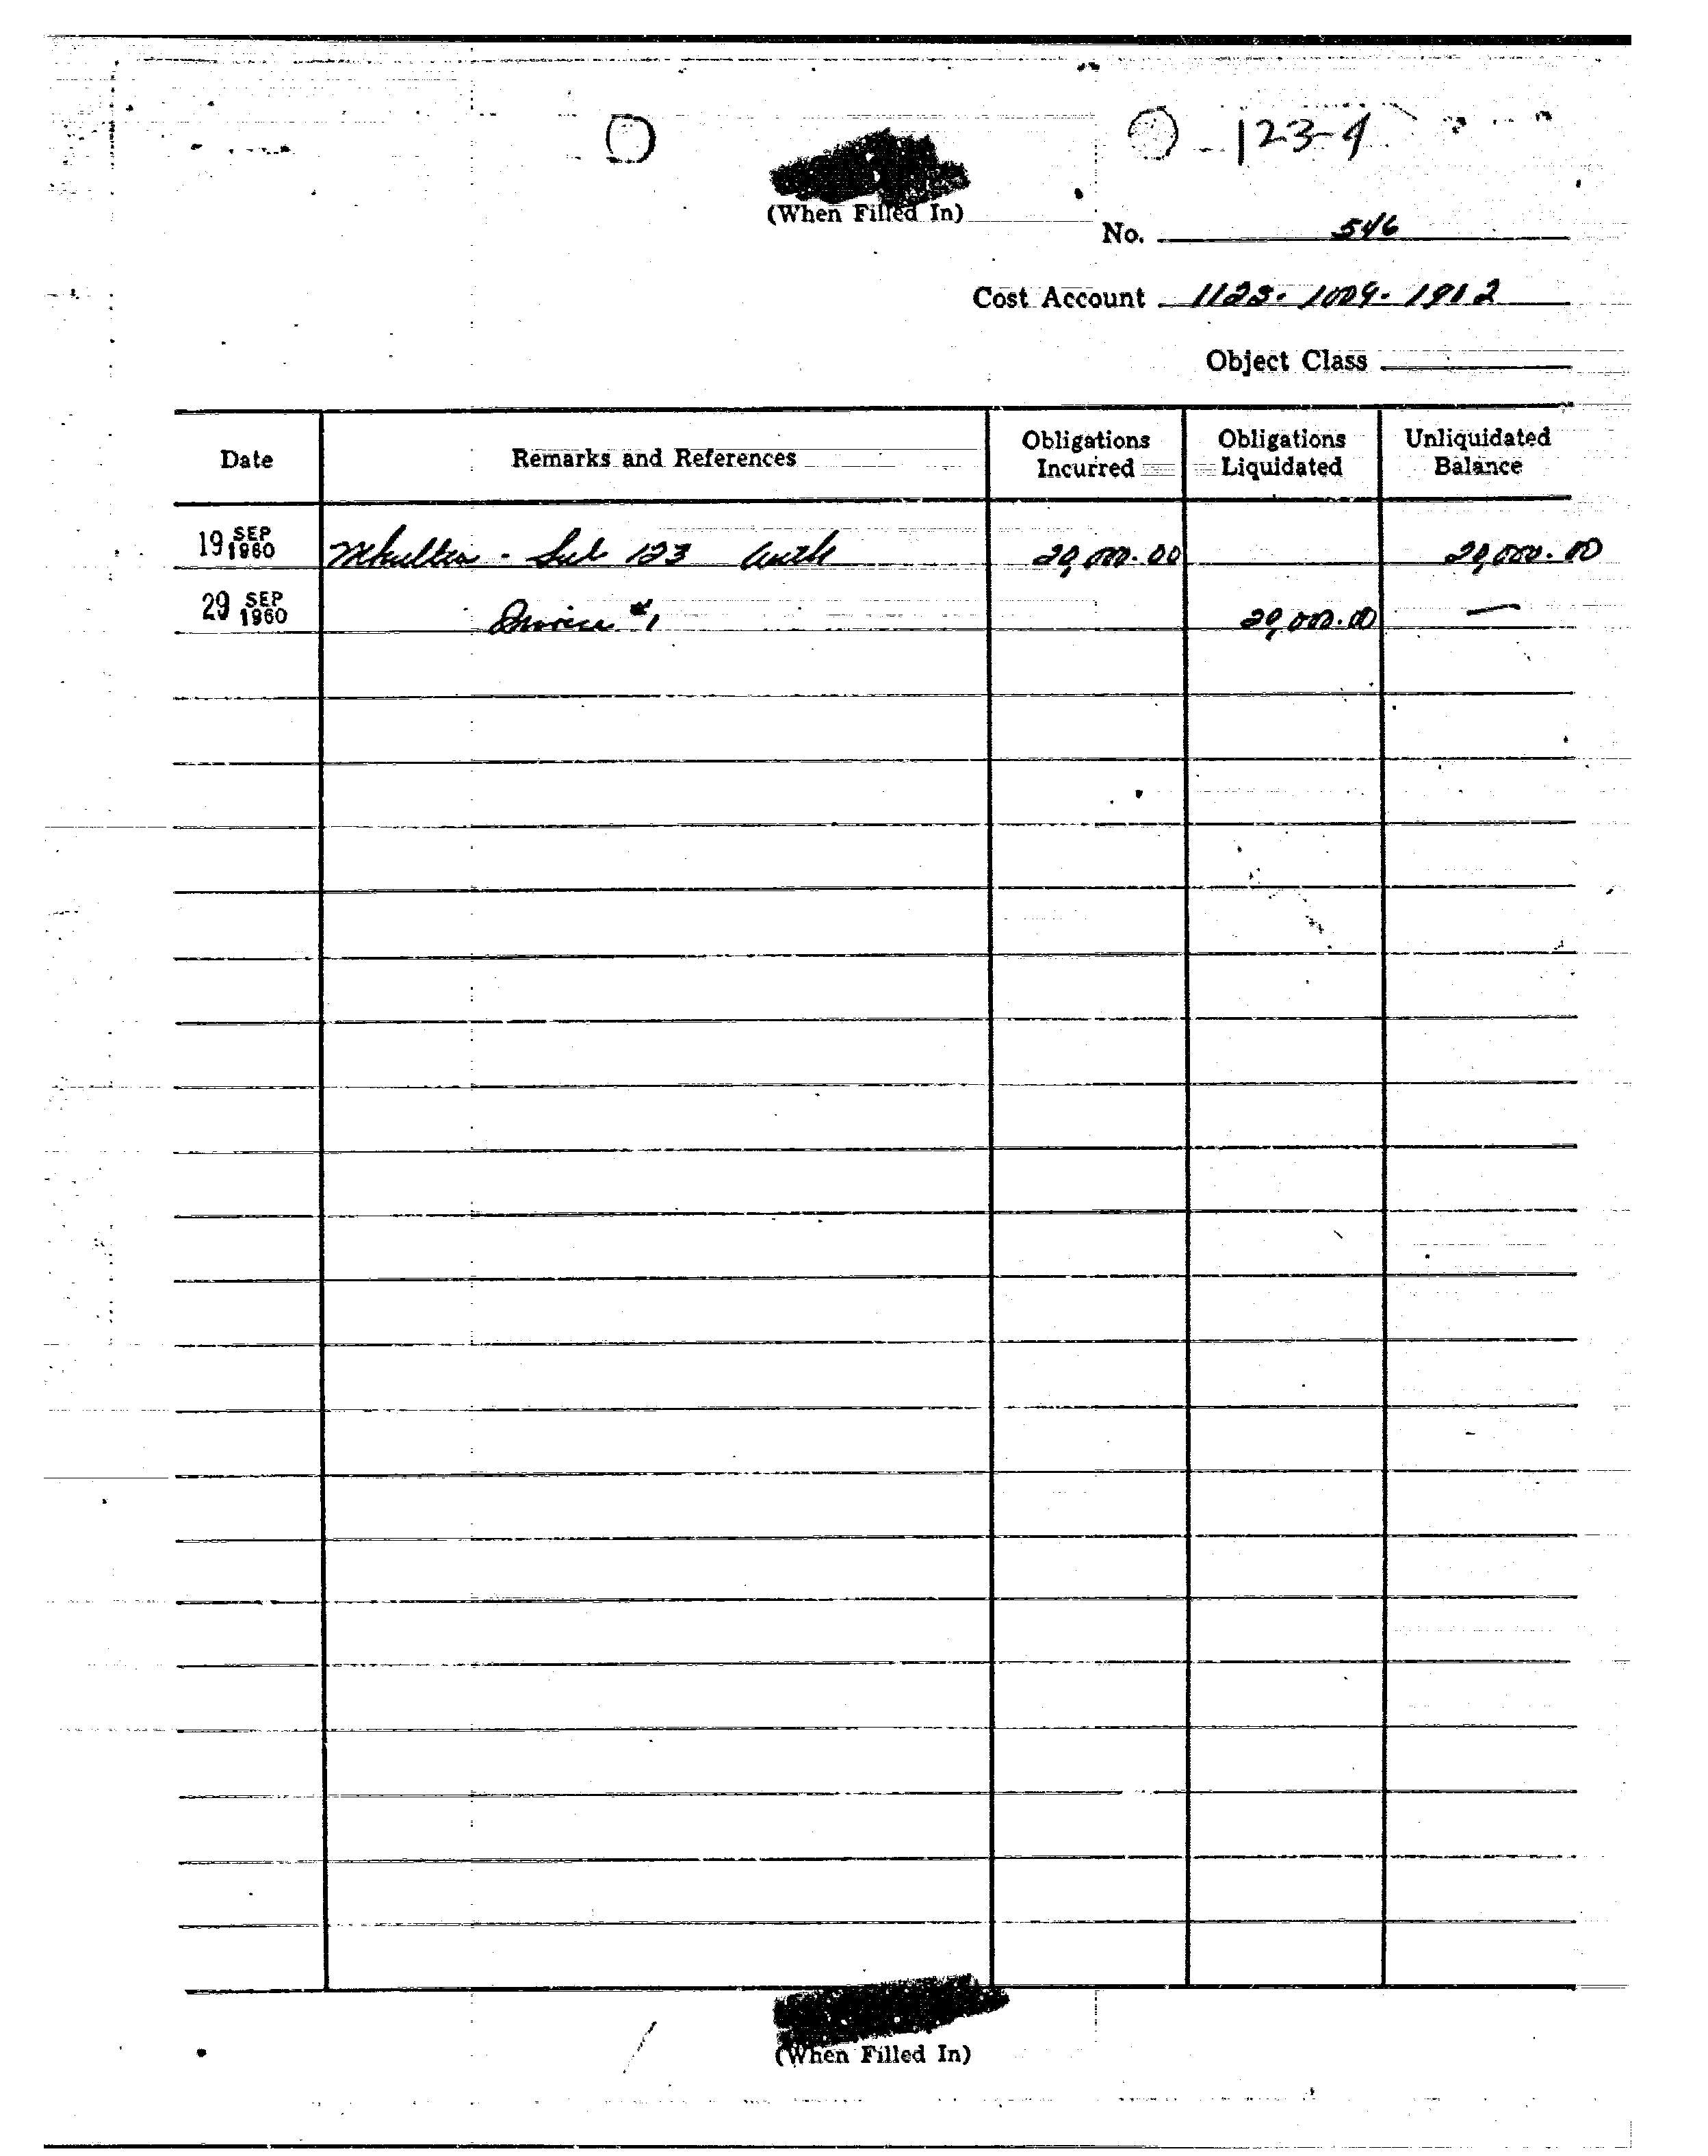 123-4
(When Filled In)
No. 546
Cost Account 1125-1009-1902
Object Class
Date Remarks and References Obligations Incurred Obligations Liquidated Unliquidated Balance
19 SEP 1960 Mkultra - Sub 123 Auth 20,000.00 20,000.00
29 SEP 1960 Invoice #1 20,000.00 —
(When Filled In)